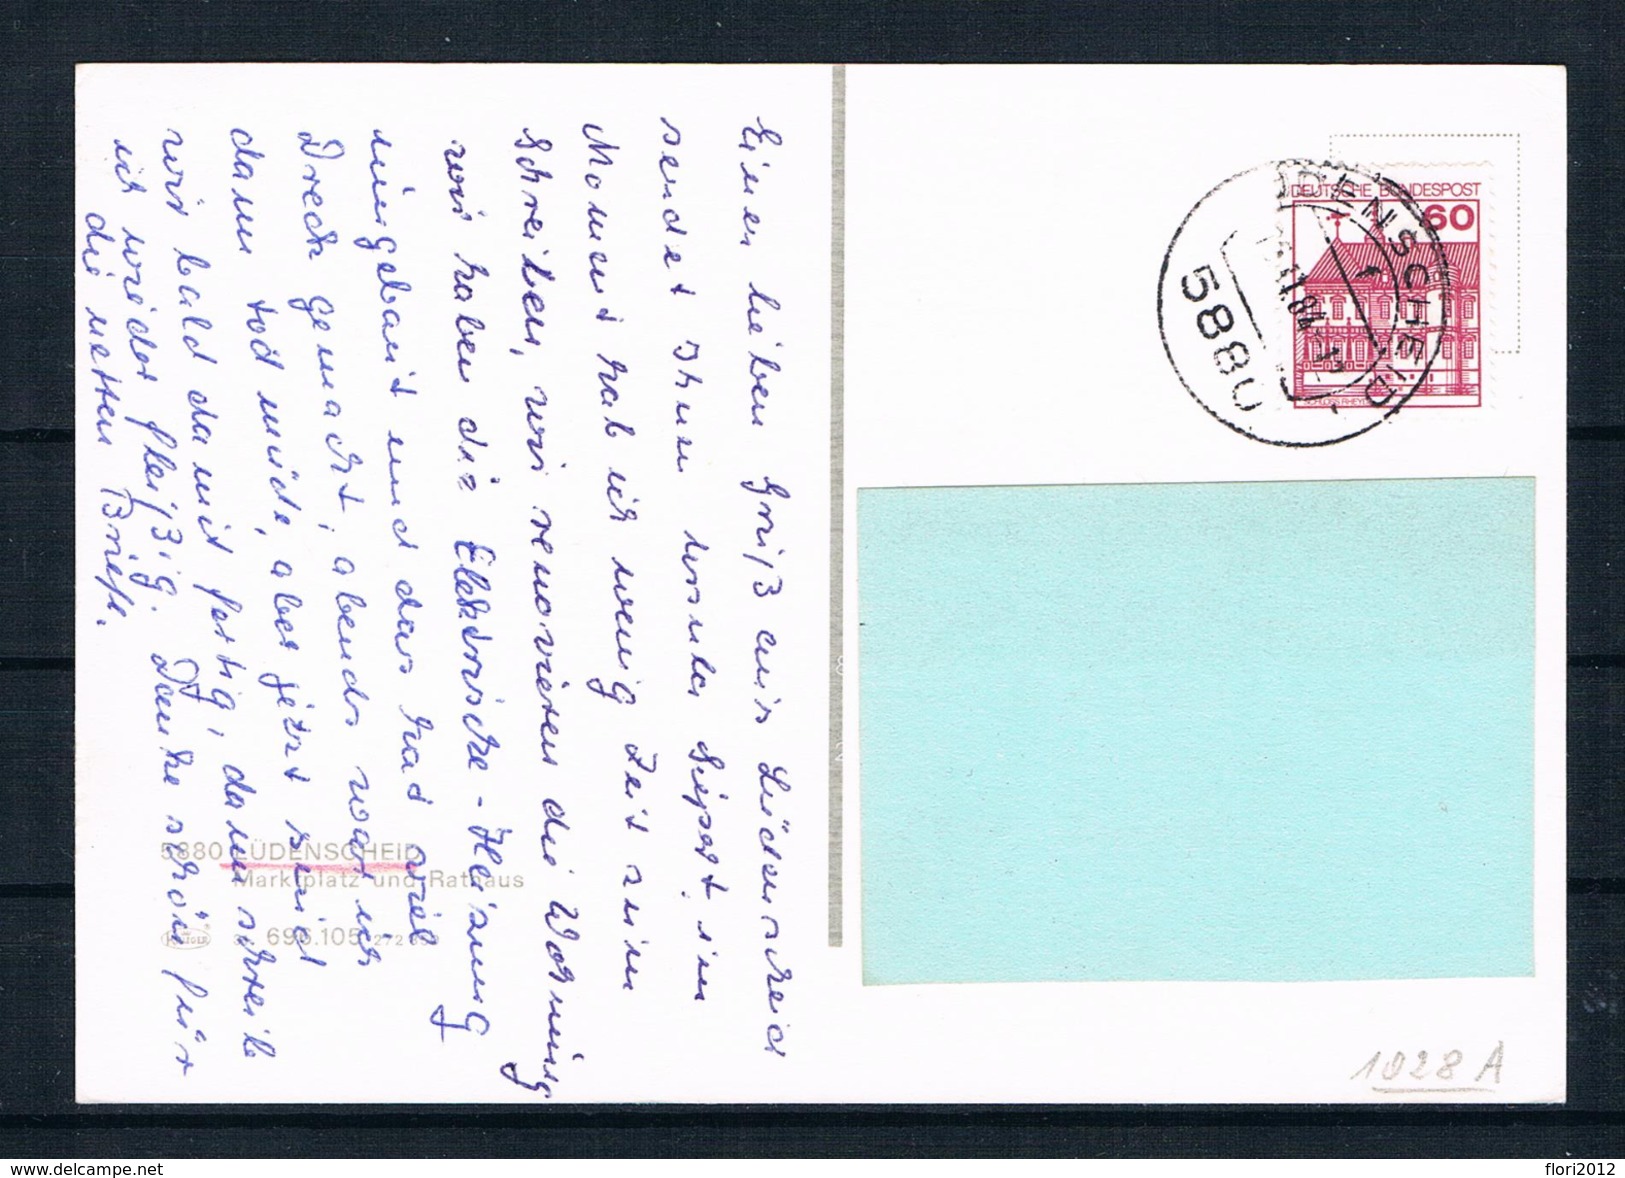 Einen lieben Gruß aus Lüdenscheid
sendet Ihnen im
Moment hab ich wenig Zeit zum
Schreiben, wir renovieren die Wohnung
wir haben die Elektrische-Heizung
eingebaut und das hat viel
Dreck gemacht, abends war ich
dann tod müde, aber jetzt sind
wir bald damit fertig, dann schreibe
ich wieder fleißig. Danke schön für
die netten Briefe.
5880 LÜDENSCHEID
Marktplatz und Rathaus
696.105
DEUTSCHE BUNDESPOST
60
SCHLOSS RHEYDT
LÜDENSCHEID
5880
1028 A
www.delcampe.net
flori2012